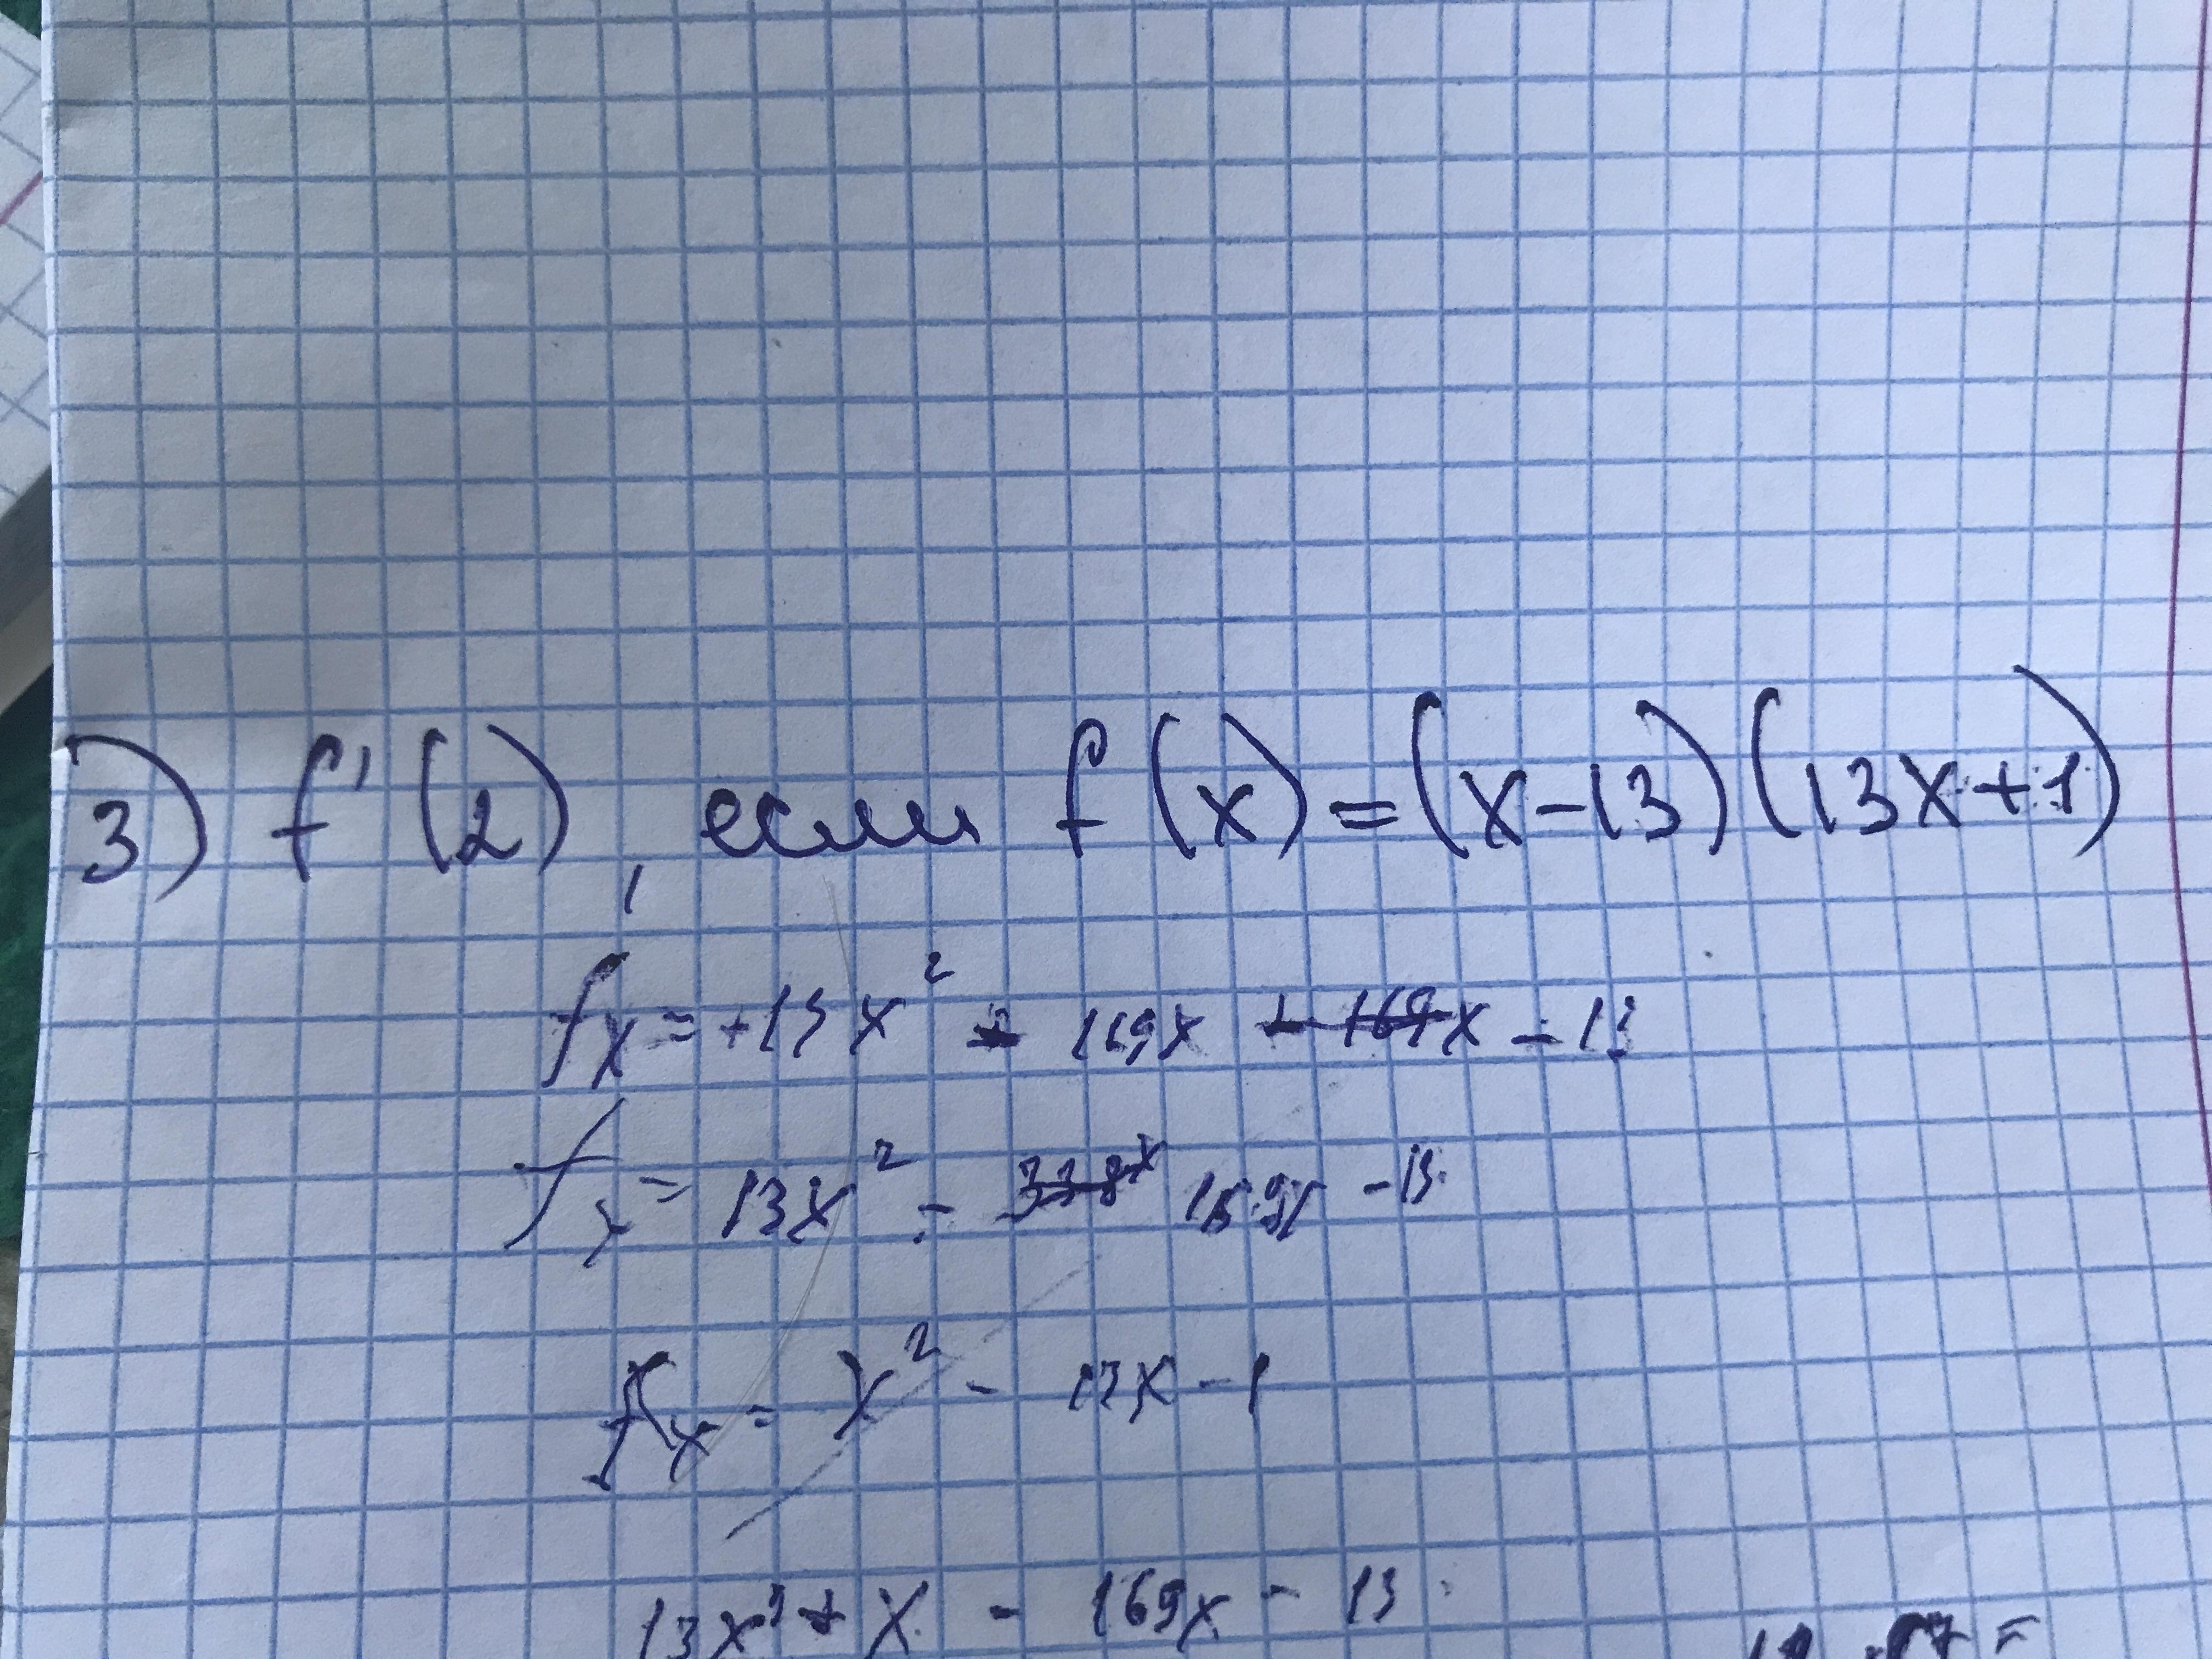 3) f'(2), если f(x)=(x-13)(13x+1)
fx = +13x² - 169x + 169x - 13
fx = 13x² - 338x 169x - 13
fx = x² - 13x - 1
13x² + x - 169x - 13